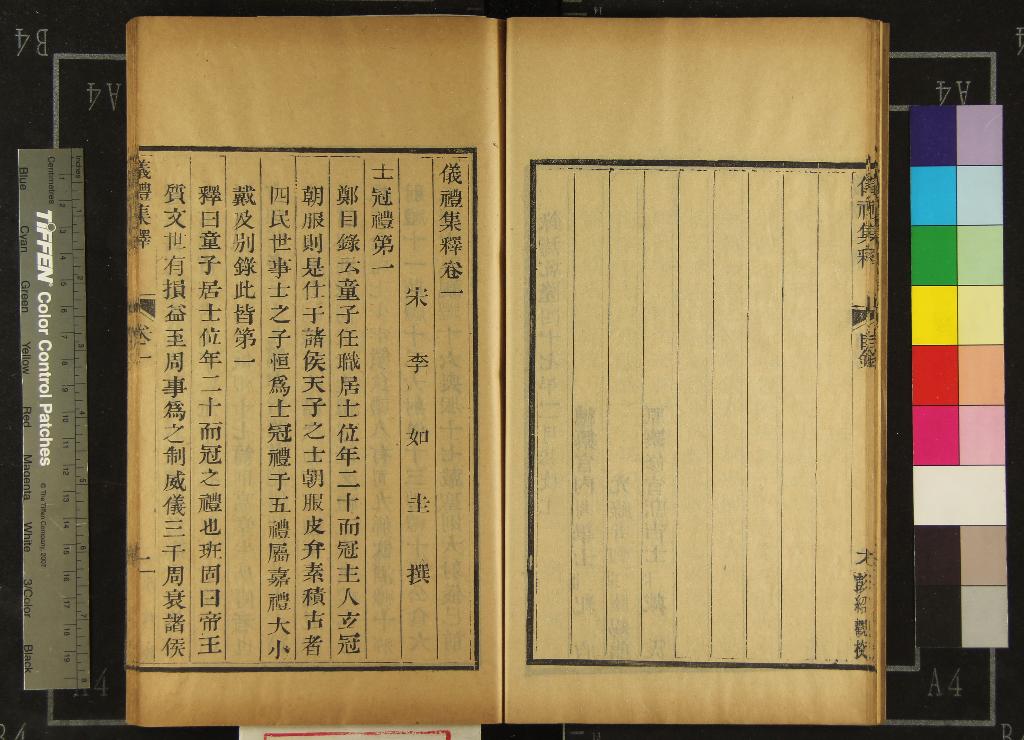 儀禮集釋
目錄
彭紹觀校
儀禮集釋卷一
宋 李如圭 撰
士冠禮第一
鄭目錄云童子任職居士位年二十而冠主人玄冠
朝服則是仕于諸侯天子之士朝服皮弁素積古者
四民世事士之子恒為士冠禮于五禮屬嘉禮大小
戴及別錄此皆第一
釋曰童子居士位年二十而冠之禮也班固曰帝王
質文世有損益至周事為之制威儀三千周衰諸侯
儀禮集釋
卷一
一
B4
A4
A4
A4
A4
Inches
Centimetres
TIFFEN Color Control Patches
© The Tiffen Company, 2007
Blue
Cyan
Green
Yellow
Red
Magenta
White
3/Color
Black